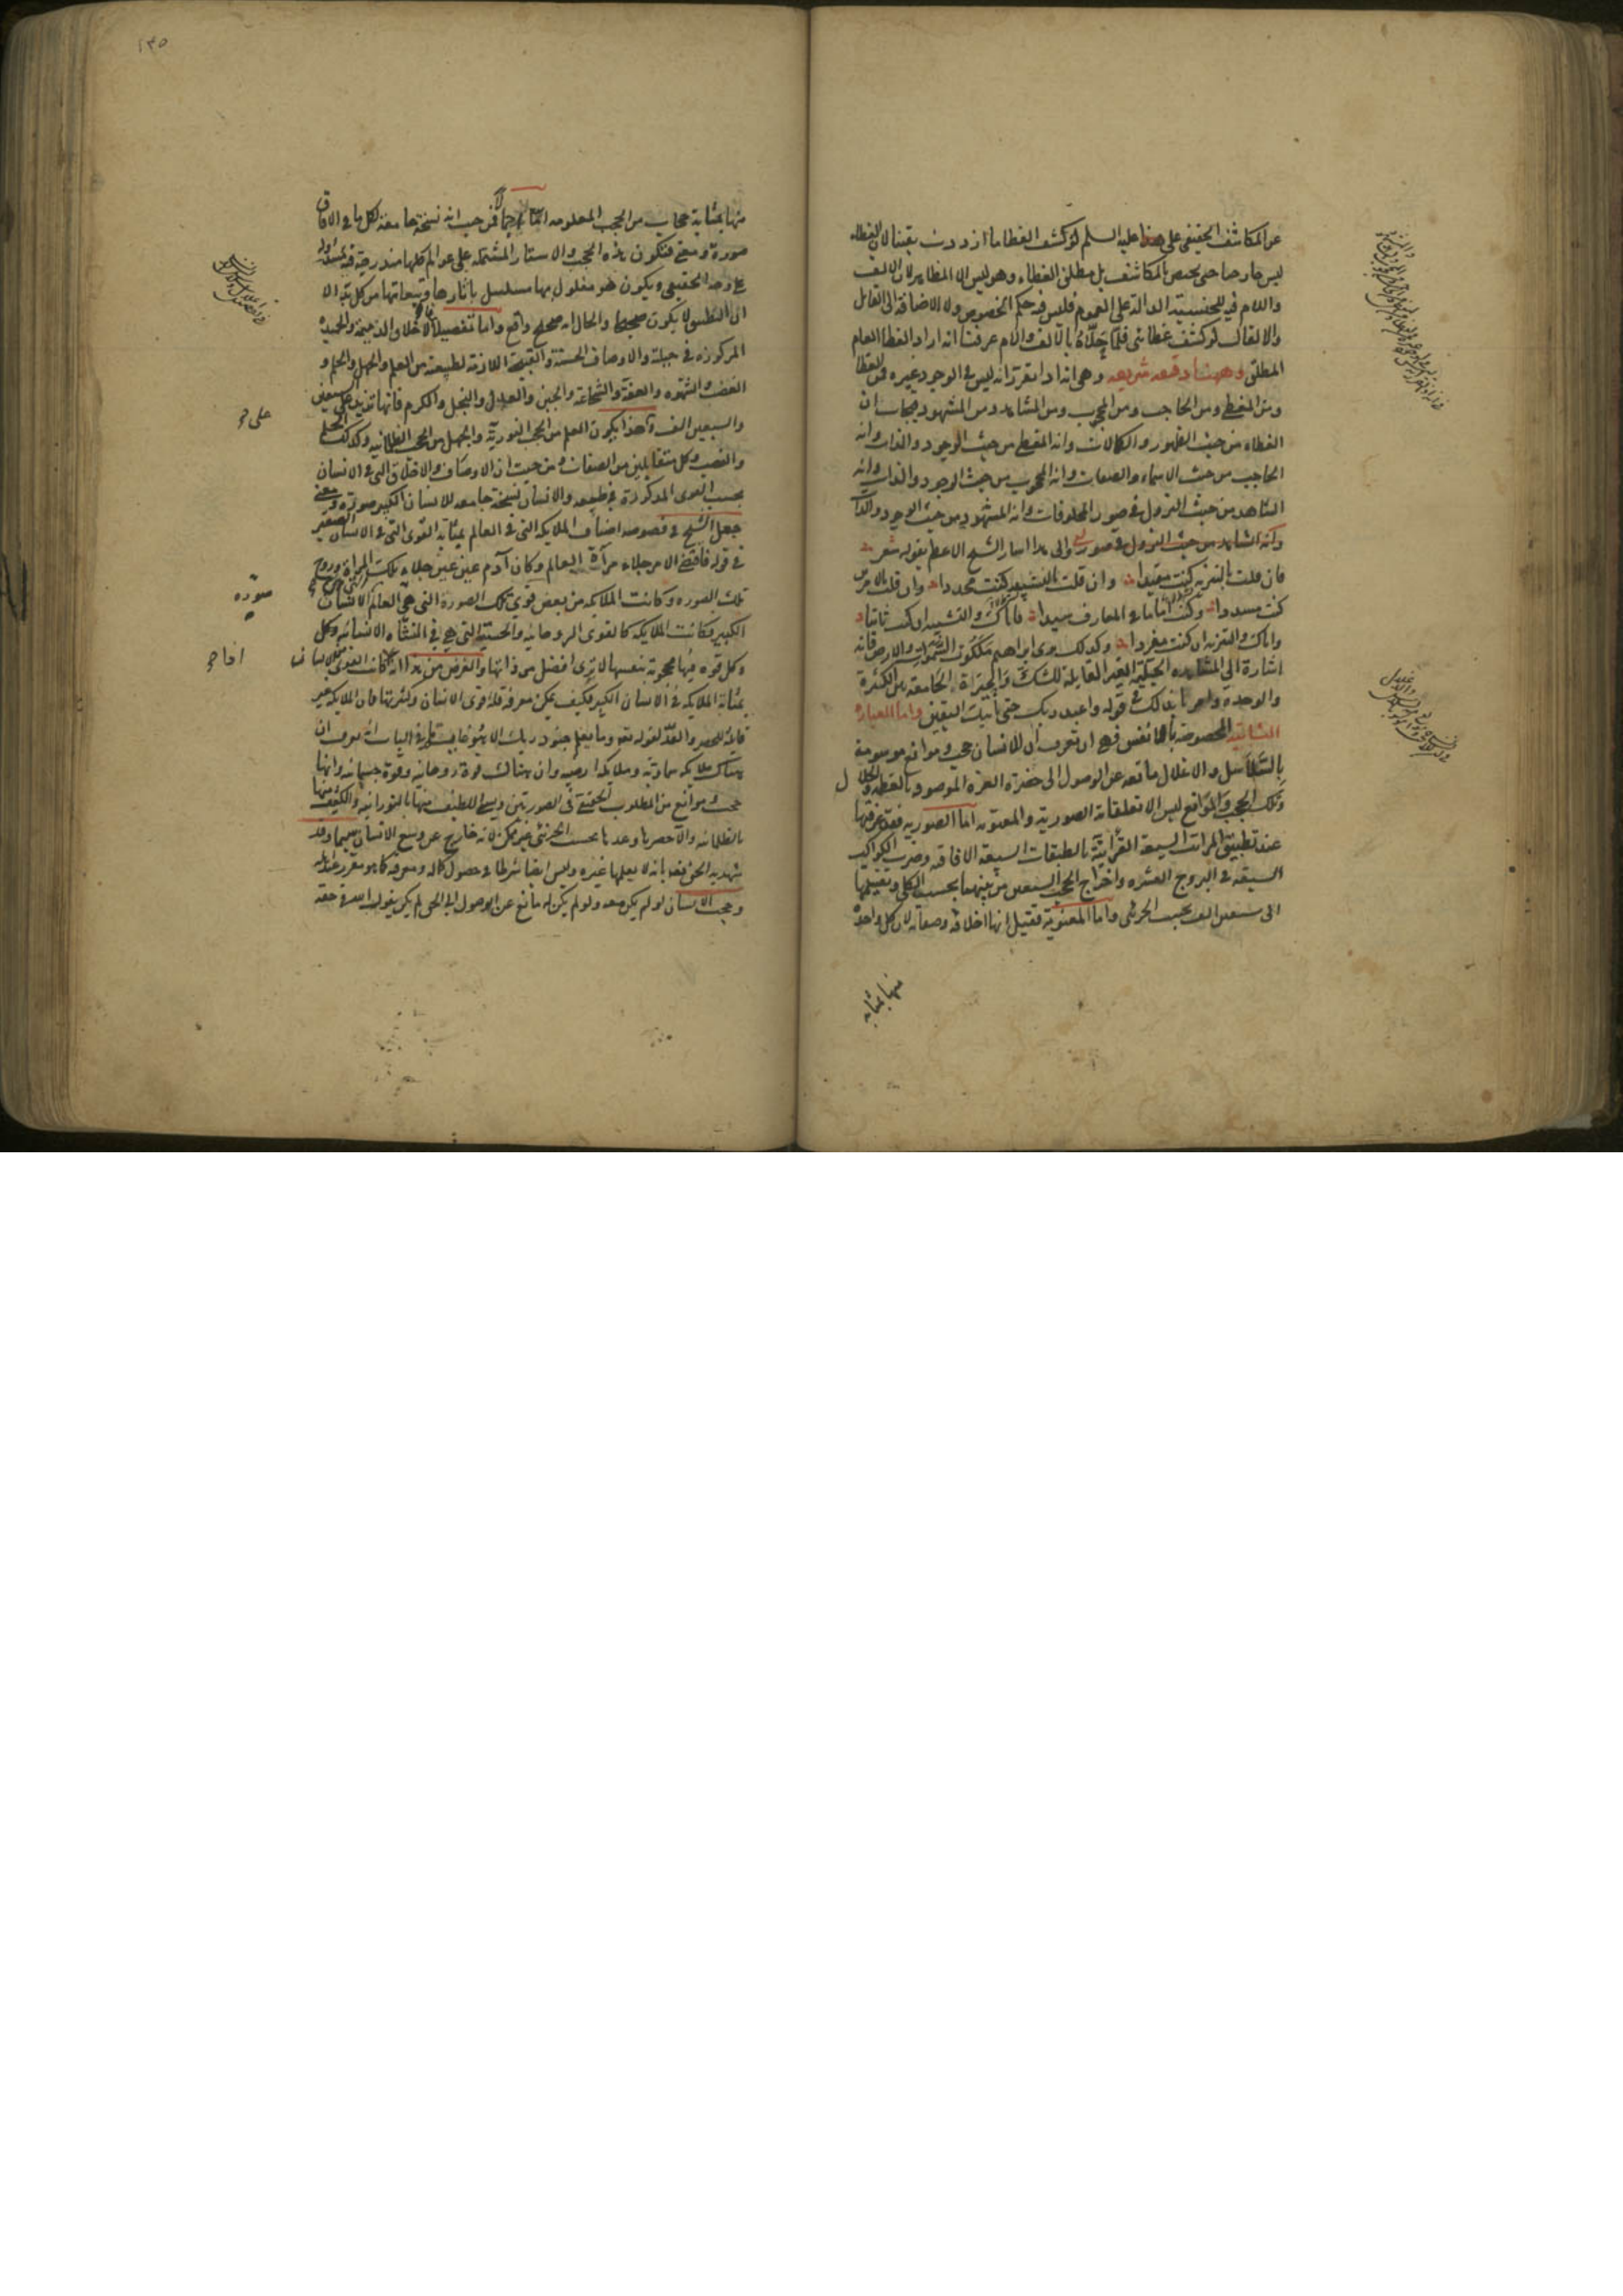 عن المكاشف الحقيقى على عليه السلم لو كشف الغطا ما ازددت يقينا لان الغطاء
ليس خارجا حتى يختص بالمكاشف بل مطلق الغطاء وهو ليس الا المظاهر لان الالف
واللام فيه للجنسية الدالة على العموم فليس فيه حكم الخصوص ولا الاضافة الى القايل
والا لقال لو كشف غطائى فلما حلاه بالالف واللام عرفنا انه اراد الغطا العام
المطلق وههنا دقيقه شريفه وهى انه اذا تقرر انه ليس فى الوجود غيره فمن الغطا
ومن المغطى ومن الحاجب ومن المحجوب ومن المشاهد ومن المشهود فيجاب ان
الغطاء من حيث الظهور والكمالات وانه المغطى من حيث الوجود والذات وانه
الحاجب من حيث الاسماء والصفات وانه المحجوب من حيث الوجود والذات وانه
الشاهد من حيث النزول فى صور المخلوقات وانه المشهود من حيث الوجود والذات
وانه الشاهد من حيث النزول فى صور والى هذا اشار الشيخ الاعظم بقوله شعر
فان قلت بالتنزيه كنت مقيدا وان قلت بالتشبيه كنت محددا وان قلت بالامرين
كنت مسددا وكنت اماما فى المعارف سيدا فاياك والتشبيه ان كنت ثانيا
واياك والتنزيه ان كنت مفردا وكذلك نرى ابراهيم ملكوت السموات والارض فانه
اشارة الى المشاهده الجبلية الغير القابلة للشك والحيرة الجامعة بين الكثرة
والوحدة وامر نا بذالك فى قوله واعبد ربك حتى ياتيك اليقين واما العبارة
الثانية المخصوصة بالانفس فهى ان تعرف ان للانسان حجب وموانع موسومة
بالسلاسل والاغلال مانعه عن الوصول الى حضرة العزه الموصوفه بالعظمه والجلال
وتلك الحجب والموانع ليس الا تعلقاته الصورية والمعنويه اما الصوريه فقد عرفتها
عند تطبيق المراتب السبعة القرآنية بالطبقات السبعة الافاقيه وضرب الكواكب
السبعه فى البروج العشره واخراج الحجب السبعين من بينهما بحسب الكلى وتفصيلها
الى سبعين الف بحسب الجزئى واما المعنوية فقيل انها اخلاقه وصفاته لان كل واحدة
منها بمثابه
١٣٥
منها بمثابة حجاب من الحجب المعلومه اما اجمالا فمن حيث انه نسخة جامعة لكل ما فى الافاق
صورة ومعنى فتكون هذه الحجب والاستار المشتملة على عوالم كلها مندرجة فيه
على وجه الحقيقى ويكون هو مغلول بها مسلسل باثارها وتبعاتها من كل الا
ان التطبيق لا يكون صحيحا والحال انه صحيح واقع واما تفصيلا فالاخلاق الذميمة والحميدة
المركوزه فى جبلة والاوصاف الحسنة والقبيحة اللازمة لطبيعته من العلم والجهل والحلم و
الغضب والشهوه والعفة والشجاعة والجبن والعدل والبخل والكرم فانها تزيد على السبعين
على ح
والسبعين الف وهذا يكون العلم من الحجب النورية والجهل من الحجب الظلمانيه وكذلك الحلم
والغضب وكل متقابلين من الصفات ومن حيث ان الاوصاف والاخلاق التى فى الانسان
بحسب القوى المذكورة فى طبيعه والانسان نسخة جامعه للانسان الكبير صورة ومعنى
جعل الشيخ فى فصوصه اصناف الملايكه التى فى العالم بمثابه القوى التى فى الانسان الصغير
فى قوله فاقتضى الامر جلاء مرآة العالم وكان آدم عين جلاء تلك المراة وروح
تلك الصوره وكانت الملايكه من بعض قوى تلك الصورة التى هى العالم الانسان
صورة
الكبير فكانت الملايكه كالقوى الروحانيه والحسية التى هى فى النشأه الانسانيه وكل
وكل قوه منها محجوبة بنفسها لا ترى افضل من ذاتها والغرض من هذا انه كانت القوى الانسان
بمثابة الملايكه فى الانسان الكبير فكيف يمكن معرفة قوى الانسان وكثرتها فان الملايكه غير
قابله للحصر والعد لقوله تعه وما يعلم جنود ربك الا هو
هناك ملايكه سماوية وملايكه ارضيه وان هنالك قوة روحانيه وقوة جسمانيه وانها
حجب وموانع من المطلوب الحقيقى فى الصورتين ويسمى اللطيف منها بالنورانيه والكثيف منها
بالظلمانيه والا حصرها وعدها بحسب الجزئى غير ممكن لانه خارج عن وسع الانسان سيما وقد
شهد به الحق تعه بانه لا يعلمها غيره وليس ايضا شرطا فى حصول كماله ومعرفته كما هو مقرر عند اهله
وحجب الانسان لو لم يكن معه ولو لم يكن له مانع عن الوصول الى الحق لم يكن يقول الله فى حقه